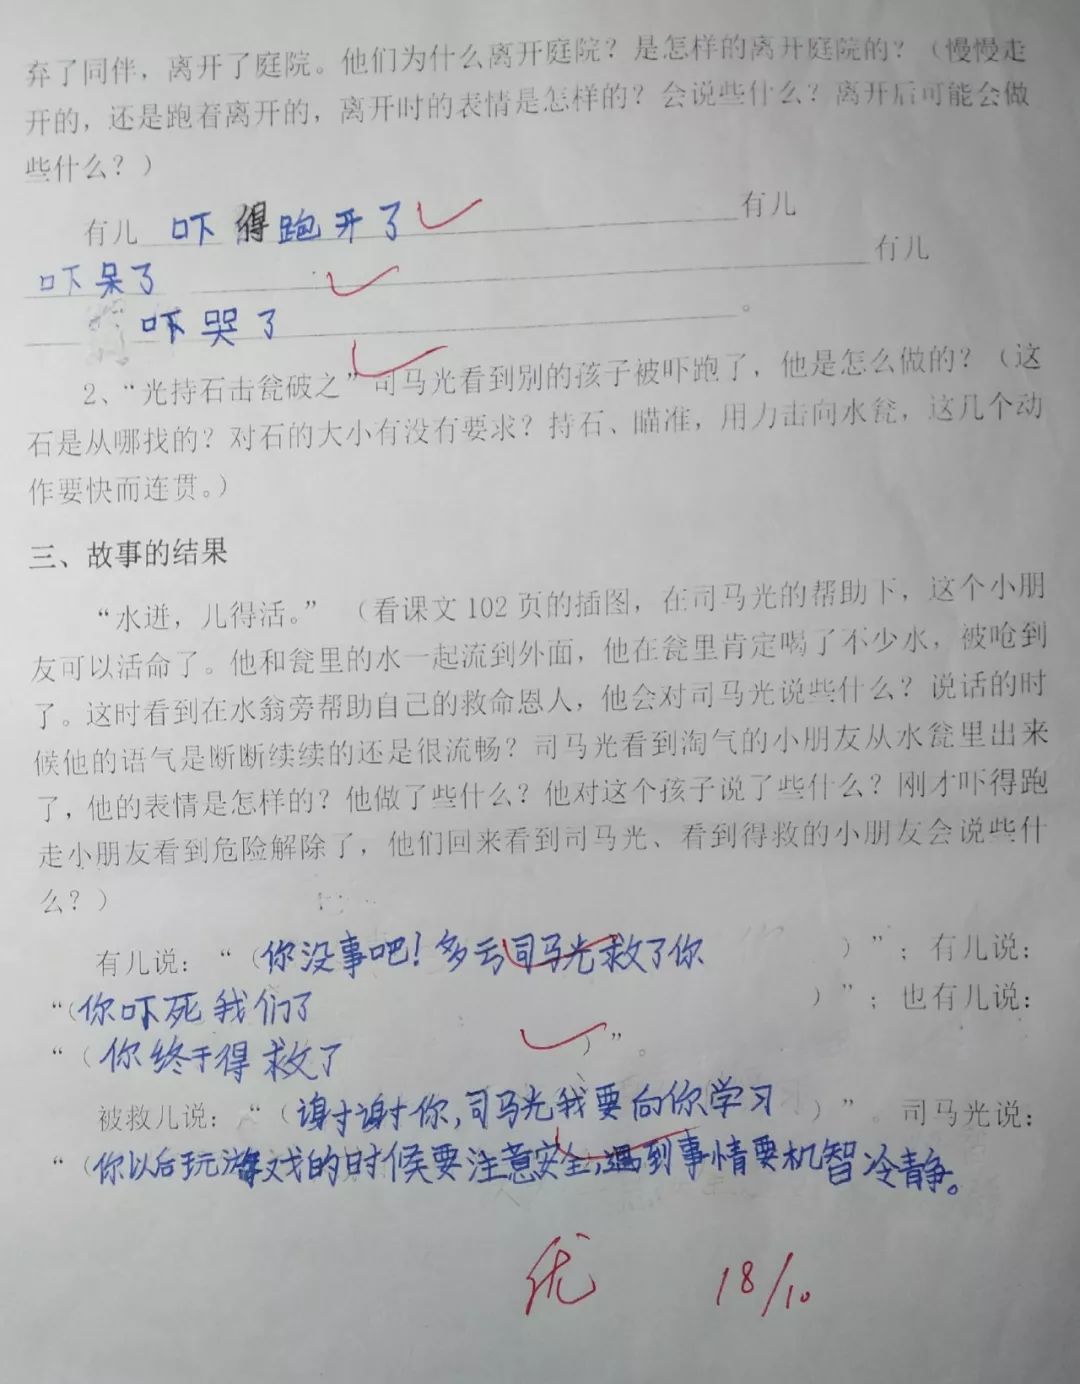 弃了同伴，离开了庭院。他们为什么离开庭院？是怎样的离开庭院的？（慢慢走
开的，还是跑着离开的，离开时的表情是怎样的？会说些什么？离开后可能会做
些什么？）
有儿 吓得跑开了 有儿
吓呆了 有儿
吓哭了 。
2、“光持石击瓮破之”司马光看到别的孩子被吓跑了，他是怎么做的？（这
石是从哪找的？对石的大小有没有要求？持石、瞄准，用力击向水瓮，这几个动
作要快而连贯。）
三、故事的结果
“水迸，儿得活。”（看课文102页的插图，在司马光的帮助下，这个小朋
友可以活命了。他和瓮里的水一起流到外面，他在瓮里肯定喝了不少水，被呛到
了。这时看到在水翁旁帮助自己的救命恩人，他会对司马光说些什么？说话的时
候他的语气是断断续续的还是很流畅？司马光看到淘气的小朋友从水瓮里出来
了，他的表情是怎样的？他做了些什么？他对这个孩子说了些什么？刚才吓得跑
走小朋友看到危险解除了，他们回来看到司马光、看到得救的小朋友会说些什
么？）
有儿说：“（你没事吧！多亏司马光救了你）”；有儿说：
“（你吓死我们了）”；也有儿说：
“（你终于得救了）”。
被救儿说：“（谢谢你，司马光我要向你学习）”。司马光说：
“（你以后玩游戏的时候要注意安全，遇到事情要机智冷静。
优 18/10